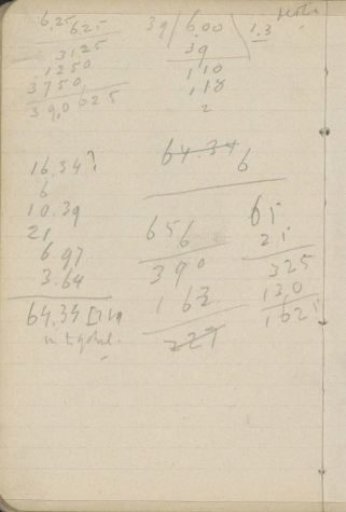 6,25
625
3125
1250
3750
39,0625
39/6,00\1.3
39
110
118
2
16.34?
6
10.39
21
6.97
3.64
64.34
64.34
6
656
390
163
227
65
25
325
130
1625